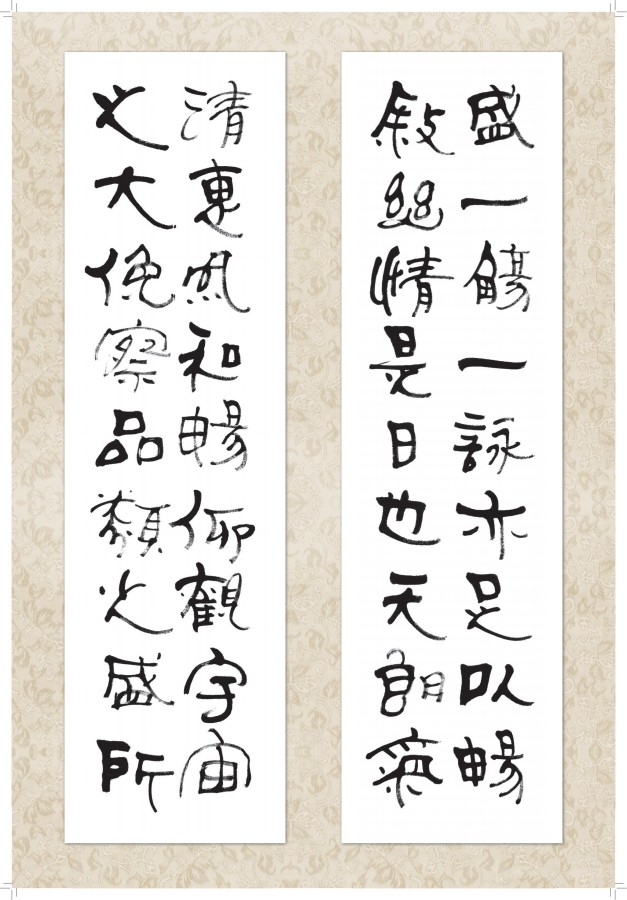 盛一觴一詠亦足以暢
敘幽情是日也天朗氣
清惠風和暢仰觀宇宙
之大俛察品類之盛所